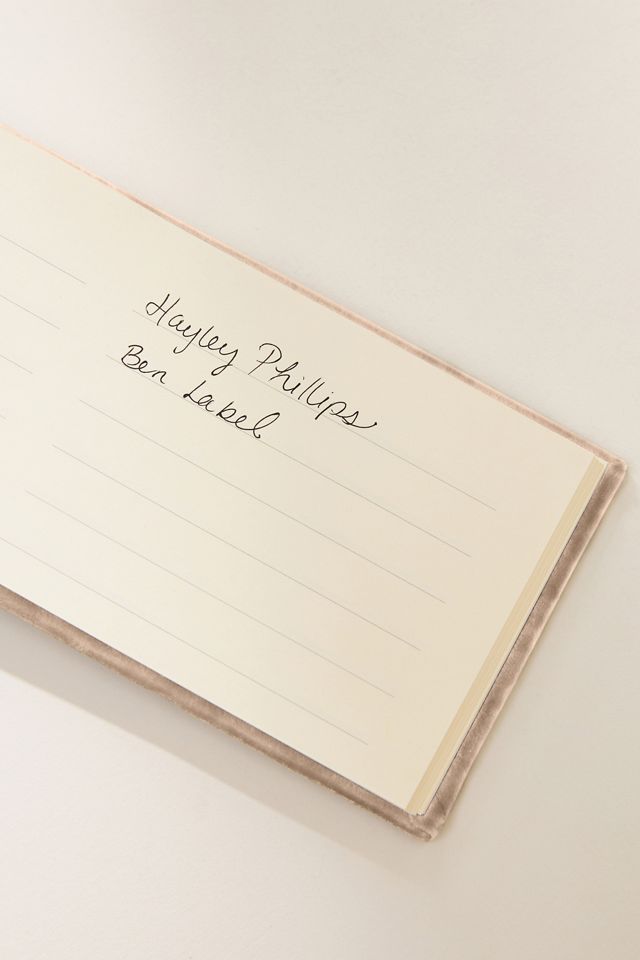 Hayley Phillips
Ben Label